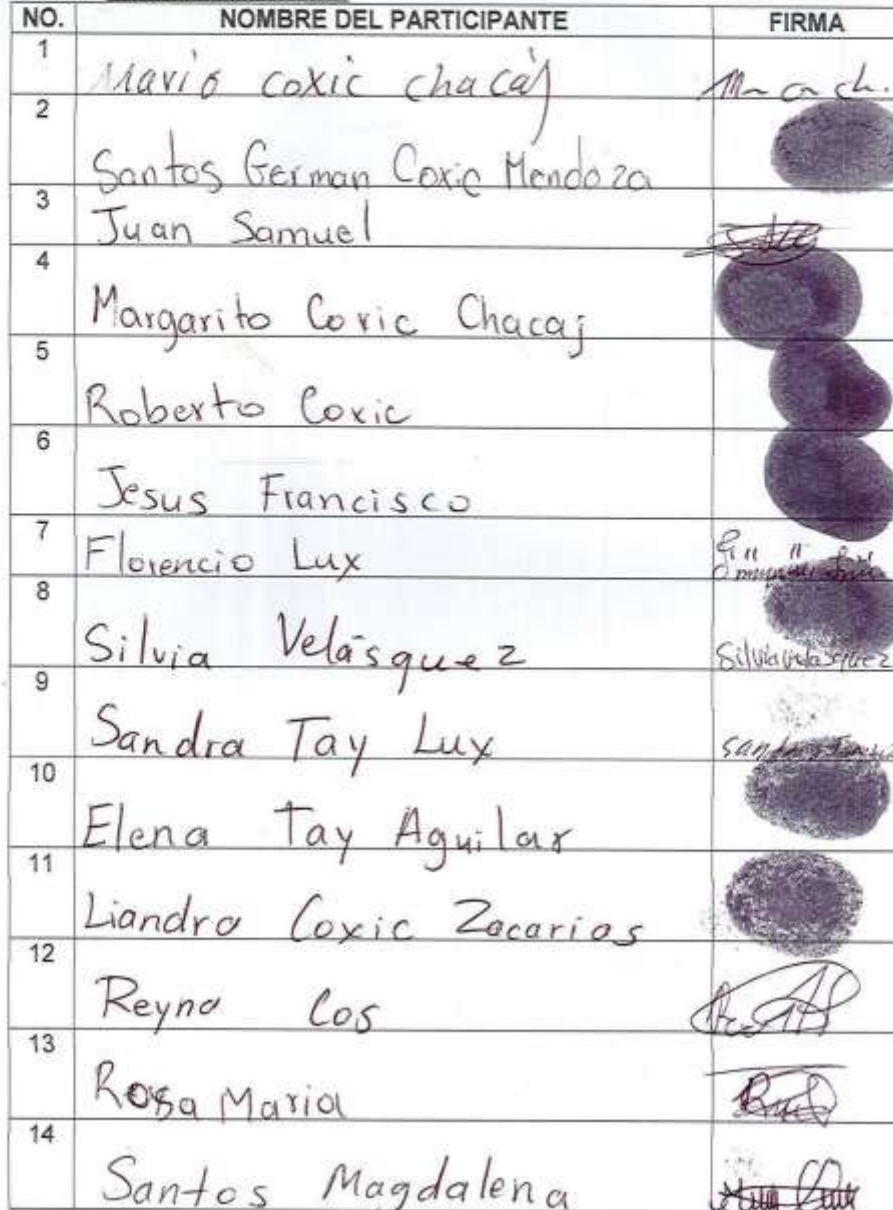 NO. NOMBRE DEL PARTICIPANTE FIRMA
1 Mario coxic chacaj
2 Santos German Coxic Mendoza
3 Juan Samuel
4 Margarito Coxic Chacaj
5 Roberto Coxic
6 Jesus Francisco
7 Florencio Lux
8 Silvia Velásquez Silvia velasquez
9 Sandra Tay Lux
10 Elena Tay Aguilar
11 Liandra Coxic Zacarias
12 Reyna Cos
13 Rosa Maria
14 Santos Magdalena